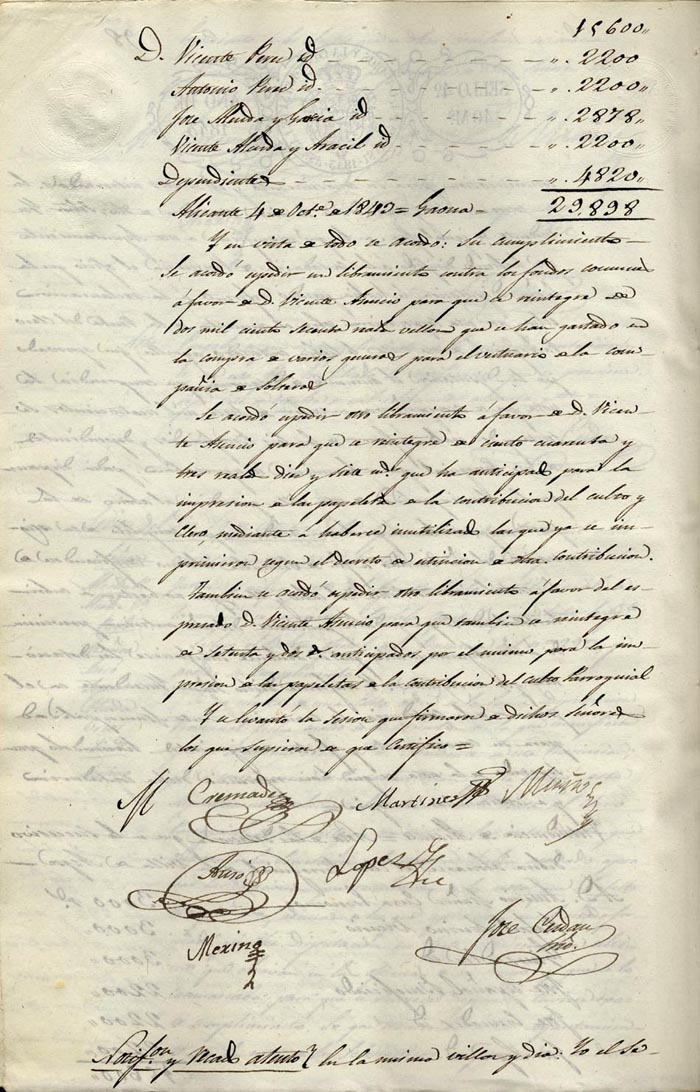 15600„
D. Vicente Pere id. „. 2200
Antonio Pere id. „. 2200„
Jose Alenda y Garcia id „. 2878„
Vicente Alenda y Aracil id „. 2200„
Dependientes „. 4820„
Alicante 4 de Octe. de 1843 = Gaona = 29,898
Y en vista de todo se acordó: Su cumplimiento
Se acordó espedir un libramiento contra los fondos comunes
á favor de D. Vicente Asencio para que se reintegre de
dos mil ciento reales vellon que se han gastado en
la compra de varios generos para el vestuario de la com-
pañia de Solteros
Se acordó espedir otro libramiento á favor de D. Vicen-
te Asencio para que se reintegre de ciento cuarenta y
tres reales diez y siete ms. que ha anticipado para la
impresion de las papeletas de la contribucion del culto y
Clero, mediante á haberse inutilizado las que ya se im-
primieron segun el decreto de estincion de dha. contribucion.
Tambien se acordó espedir otro libramiento á favor del es-
presado D. Vicente Asencio para que tambien se reintegre
de setenta y dos rs. anticipados por el mismo para la im-
presion de las papeletas de la contribucion del culto Parroquial
Y se levantó la sesion que firmaron de dichos Señores
los que supieron de que certifico =
Cremades Martinez
Lopez
Asencio
Mexino
Jose Cerdan
Srio.
y recado atento En la misma villa y dia: Yo el Se-